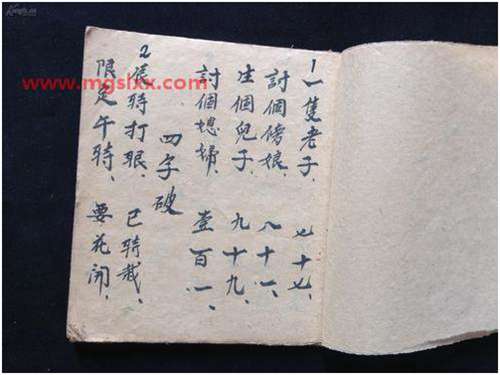 1 一隻老子、 七十七、
討個傍娘、 八十一、
生個兒子、 九十九、
討個媳婦、 壹百一、
四字破
2 辰時打眼、 巳時栽、
限定午時、 要花開、
www.mgslxx.com